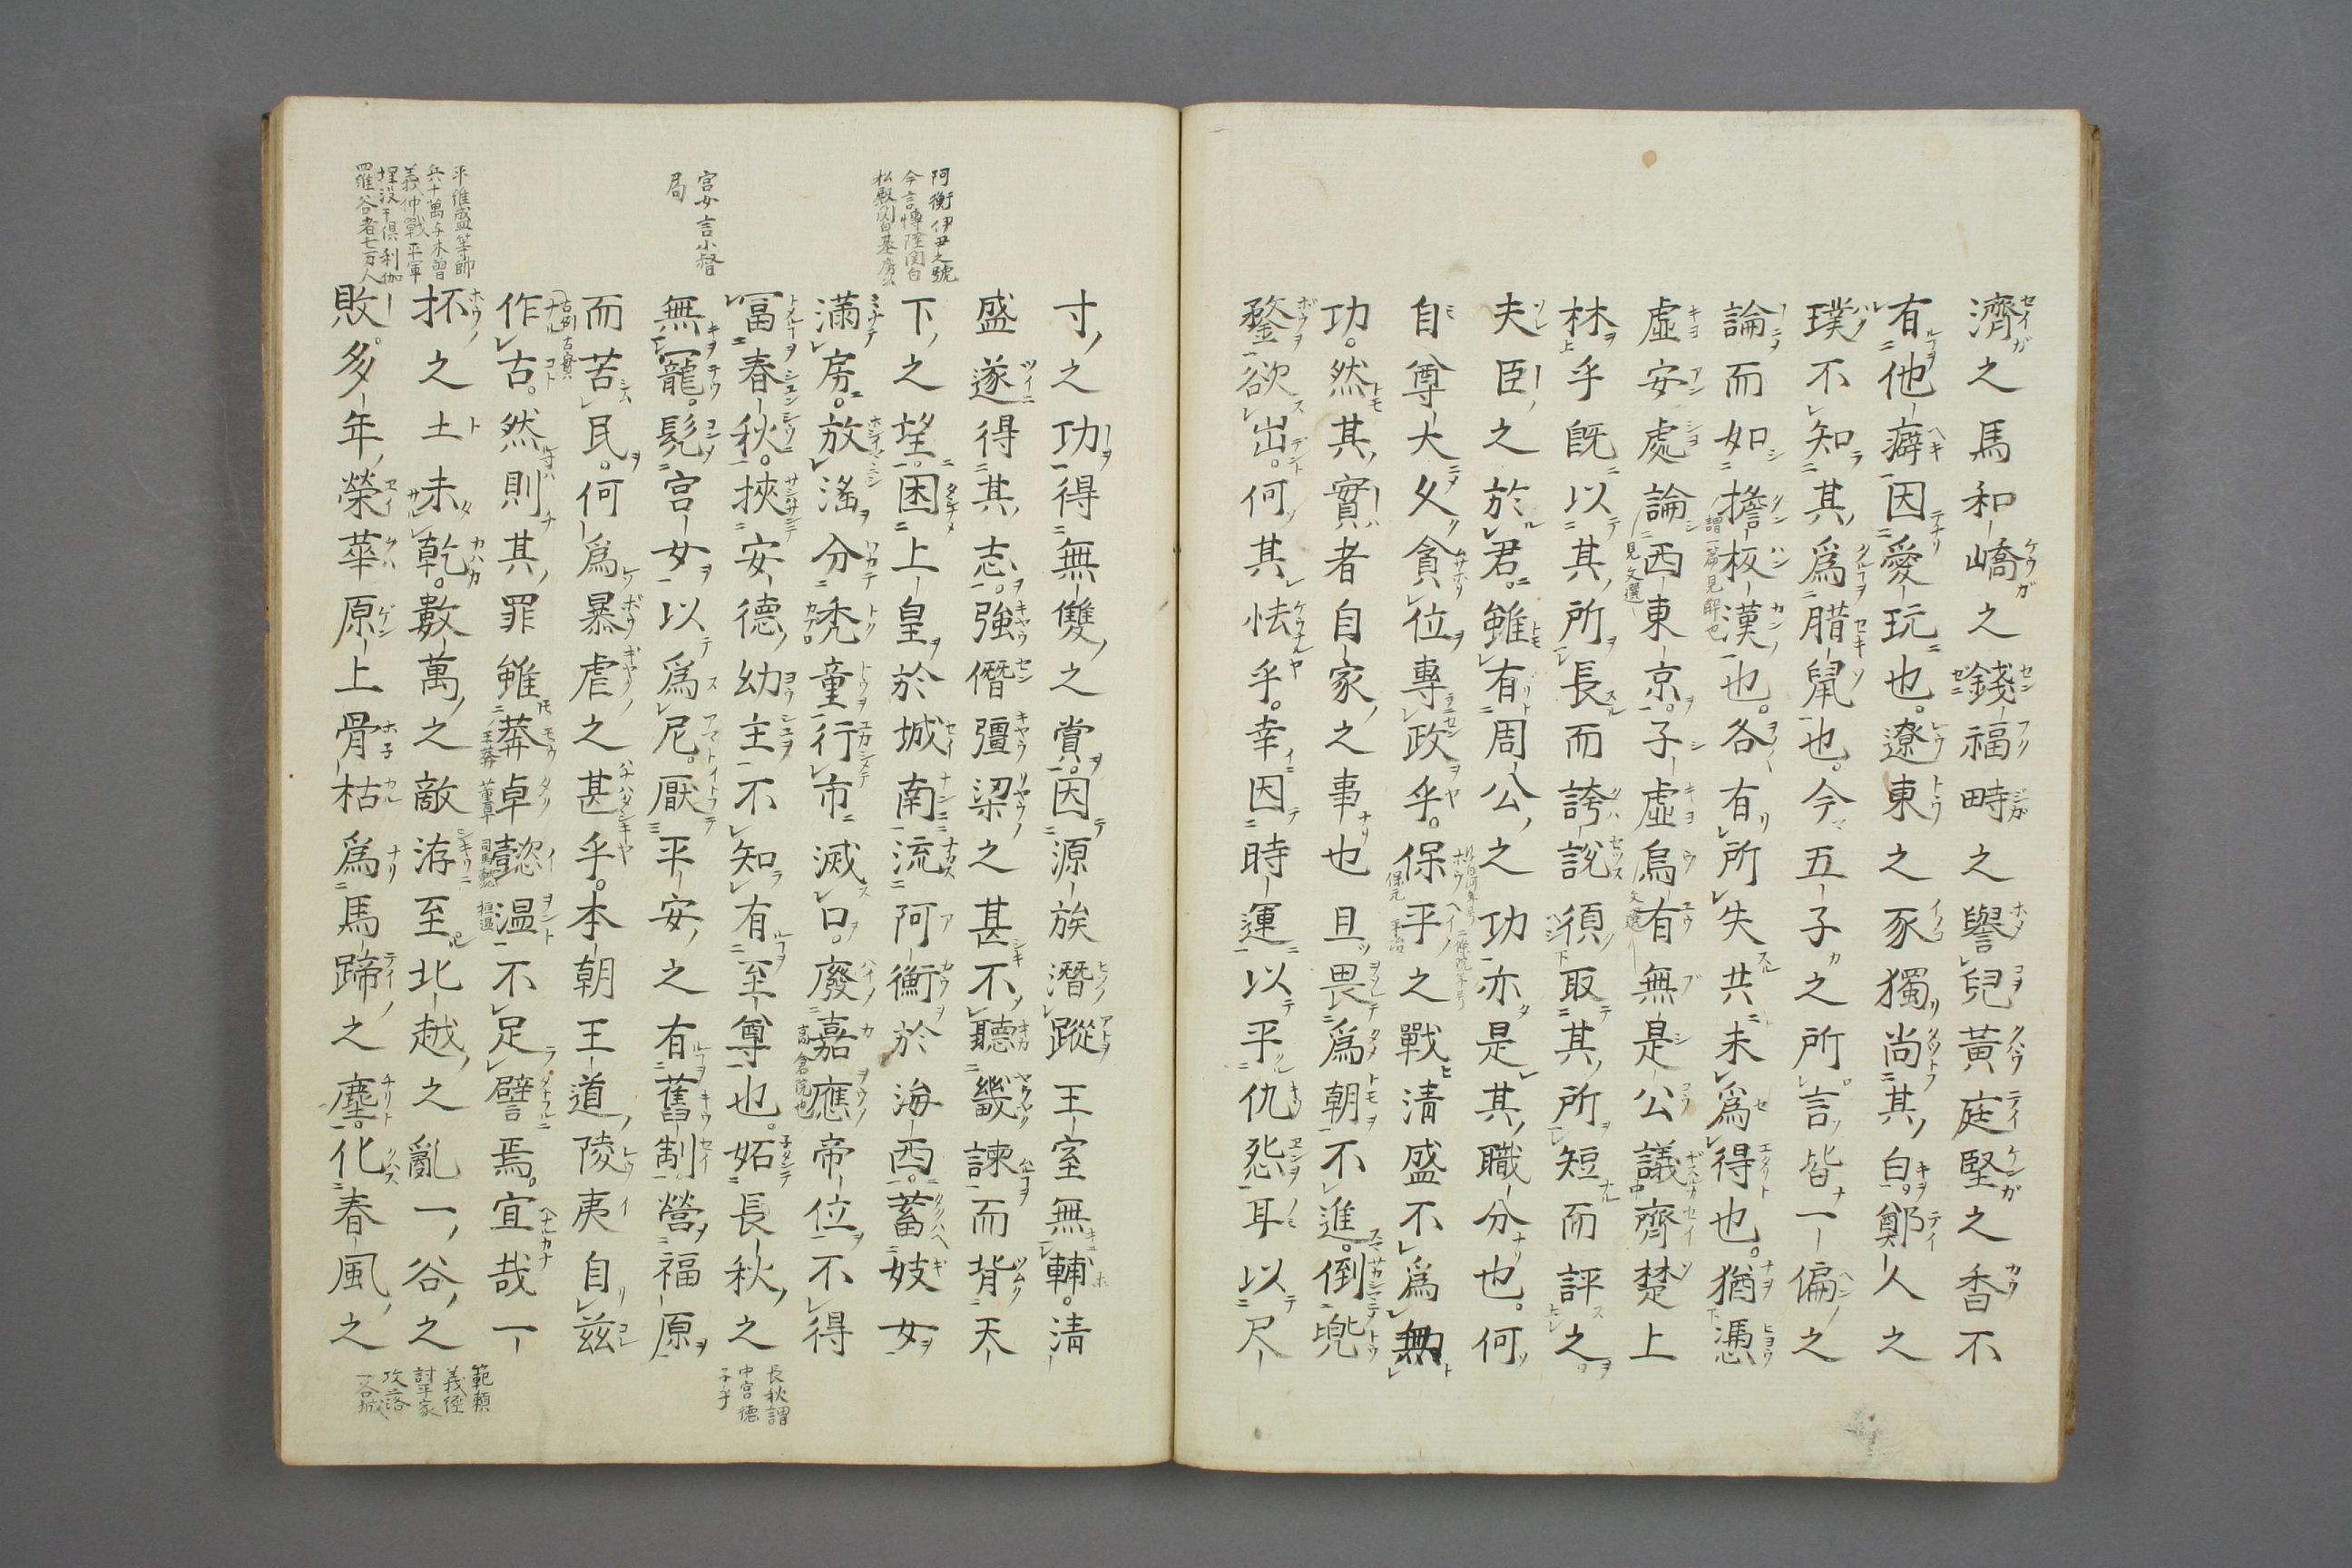 濟之馬和嶠之錢福畤之譽兒黃庭堅之香不
有他癖因愛玩也遼東之豕獨尚其白鄭人之
璞不知其爲腊鼠也今五子之所言皆一偏之
論而如擔板漢也各有所失共未爲得也猶憑
虛安處論西東京子虛烏有無是公議齊楚上
林乎既以其所長而誇說須取其所短而評之
夫臣之於君雖有周公之功亦是其職分也何
自尊大夂貪位專政乎保平之戰清盛不爲無
功然其實者自家之事也且畏爲朝不進倒兜
鍪欲出何其怯乎幸因時運以平仇怨耳以尺
寸之功得無雙之賞因源族潛蹤王室無輔清
盛遂得其志強僭彊梁之甚不聽畿諫而背天
下之望困上皇於城南流阿衡於海西蓄妓女
滿房放滛分禿童行市滅口廢嘉應帝位不得
冨春秋挾安德幼主不知有至尊也妬長秋之
無寵髡宮女以爲尼厭平安之有舊制營福原
而苦民何爲暴虐之甚乎本朝王道陵夷自茲
作古然則其罪雖莽卓懿温不足譬焉宜哉一
抔之土未乾數萬之敵洊至北越之亂一谷之
敗多年榮華原上骨枯爲馬蹄之塵化春風之
阿衡伊尹之號
今言博陸関白
松殿関白基房公
宮女言小督
局
平維盛等帥
兵十萬与木曾
義仲戰平軍
埋没于倶利伽
羅谷者七万人
長秋謂
中宮德
子乎
範頼
義経
討平家
攻落
一谷城
謂一篇見解也
見文選
文選
保元
平治
高倉院也
王莽
董卓
司馬懿
桓温